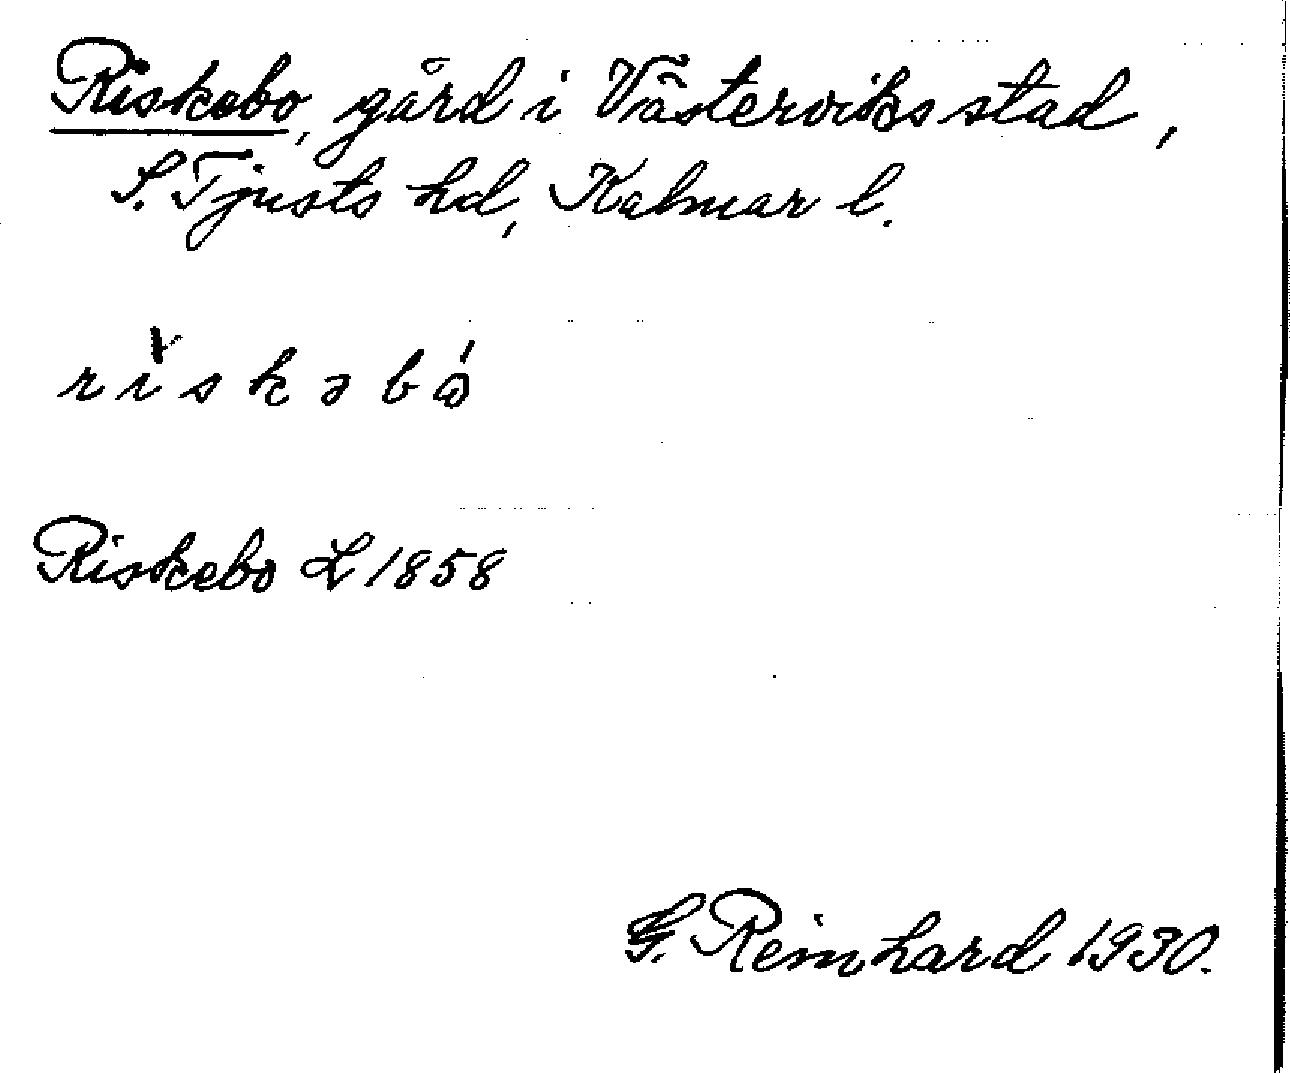 Riskebo, gård i Västerviks stad,
S. Tjusts hd, Kalmar l.
rìskəbó
Riskebo L 1858
G. Reinhard 1930.